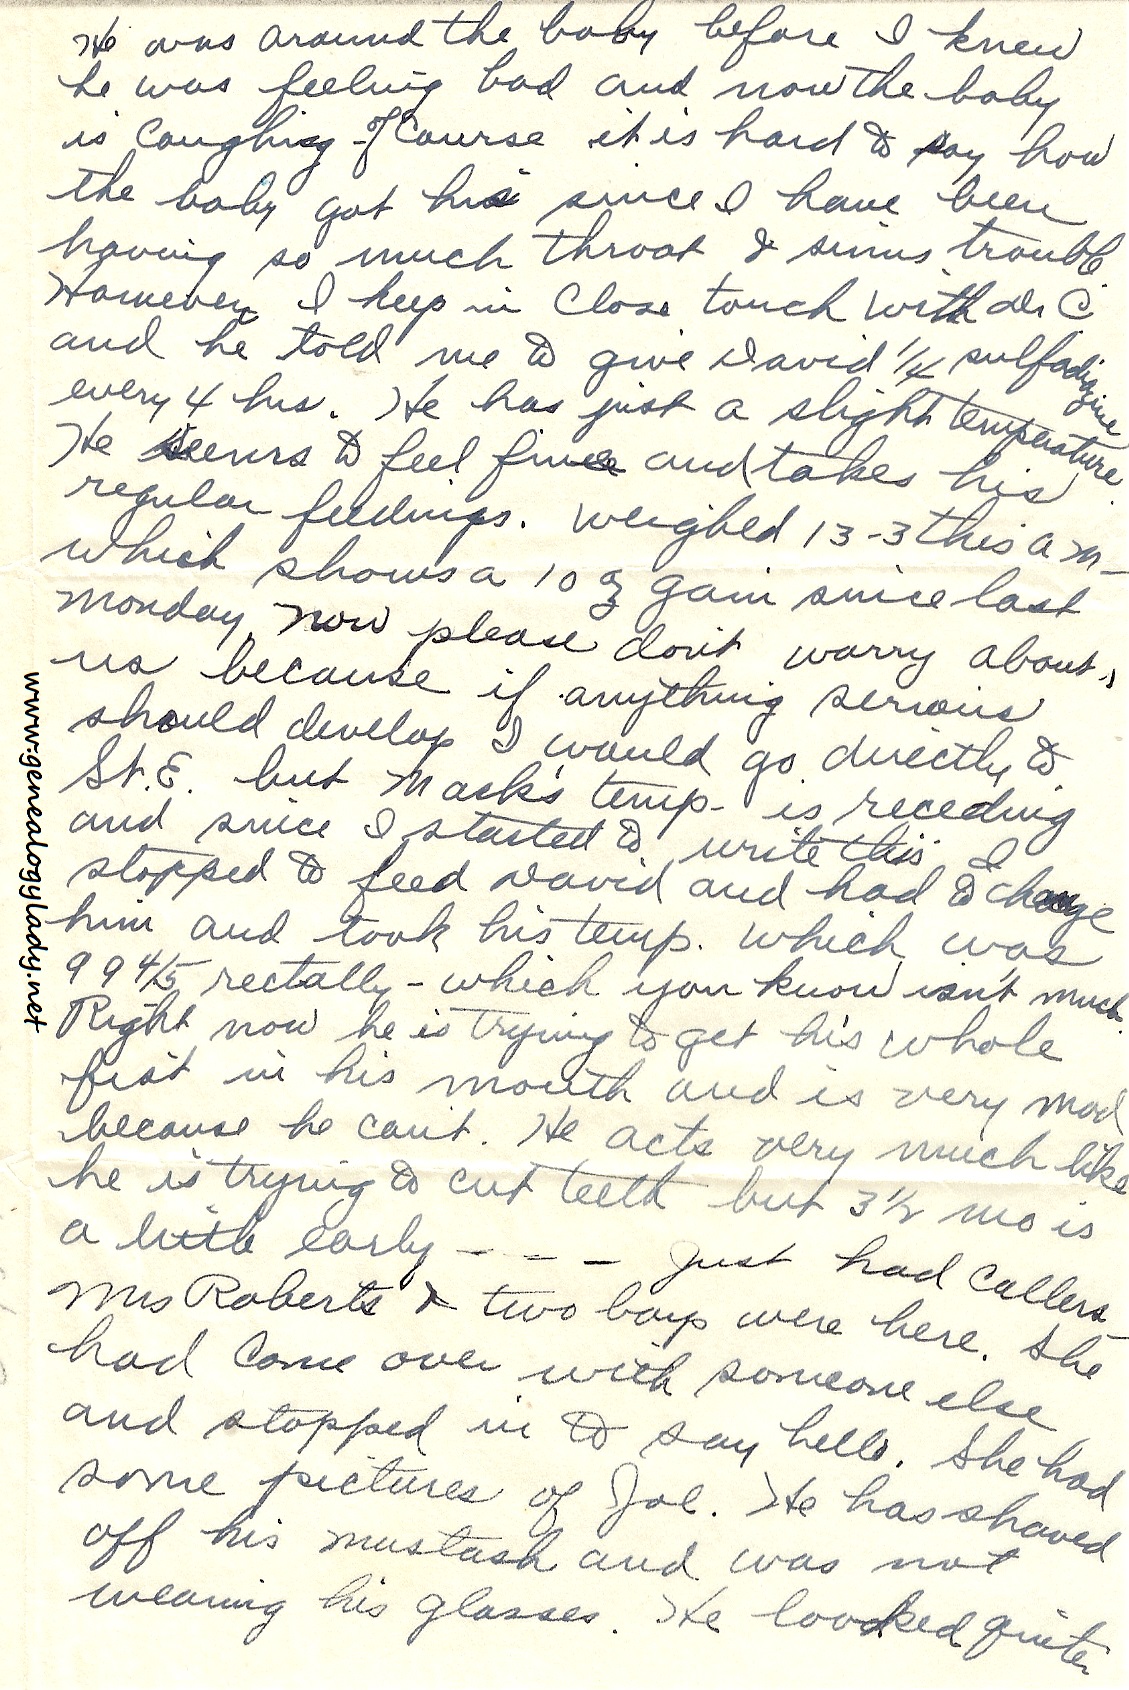 He was around the baby before I knew
he was feeling bad and now the baby
is coughing - of course it is hard to say how
the baby got his since I have been
having so much throat & sinus trouble
However, I keep in close touch with Dr C
and he told me to give David 1/4 sulfadizine
every 4 hrs. He has just a slight temperature.
He seems to feel fine and takes his
regular feedings. Weighed 13-3 this a m -
which shows a 10 oz gain since last
Monday, Now please don't worry about
us because if anything serious
should develop I would go directly to
St. E. but Mask's temp - is receding
and since I started to write this I
stopped to feed David and had to change
him and took his temp. which was
99 4/5 rectally - which you know isn't much.
Right now he is trying to get his whole
fist in his mouth and is very mad
because he can't. He acts very much like
he is trying to cut teeth but 3 1/2 mo is
a little early - - - - Just had callers -
Mrs Roberts & two boys were here. She
had come over with someone else
and stopped in to say hello. She had
some pictures of Joe. He has shaved
off his mustash and was not
wearing his glasses. He looked quite
www.genealogylady.net